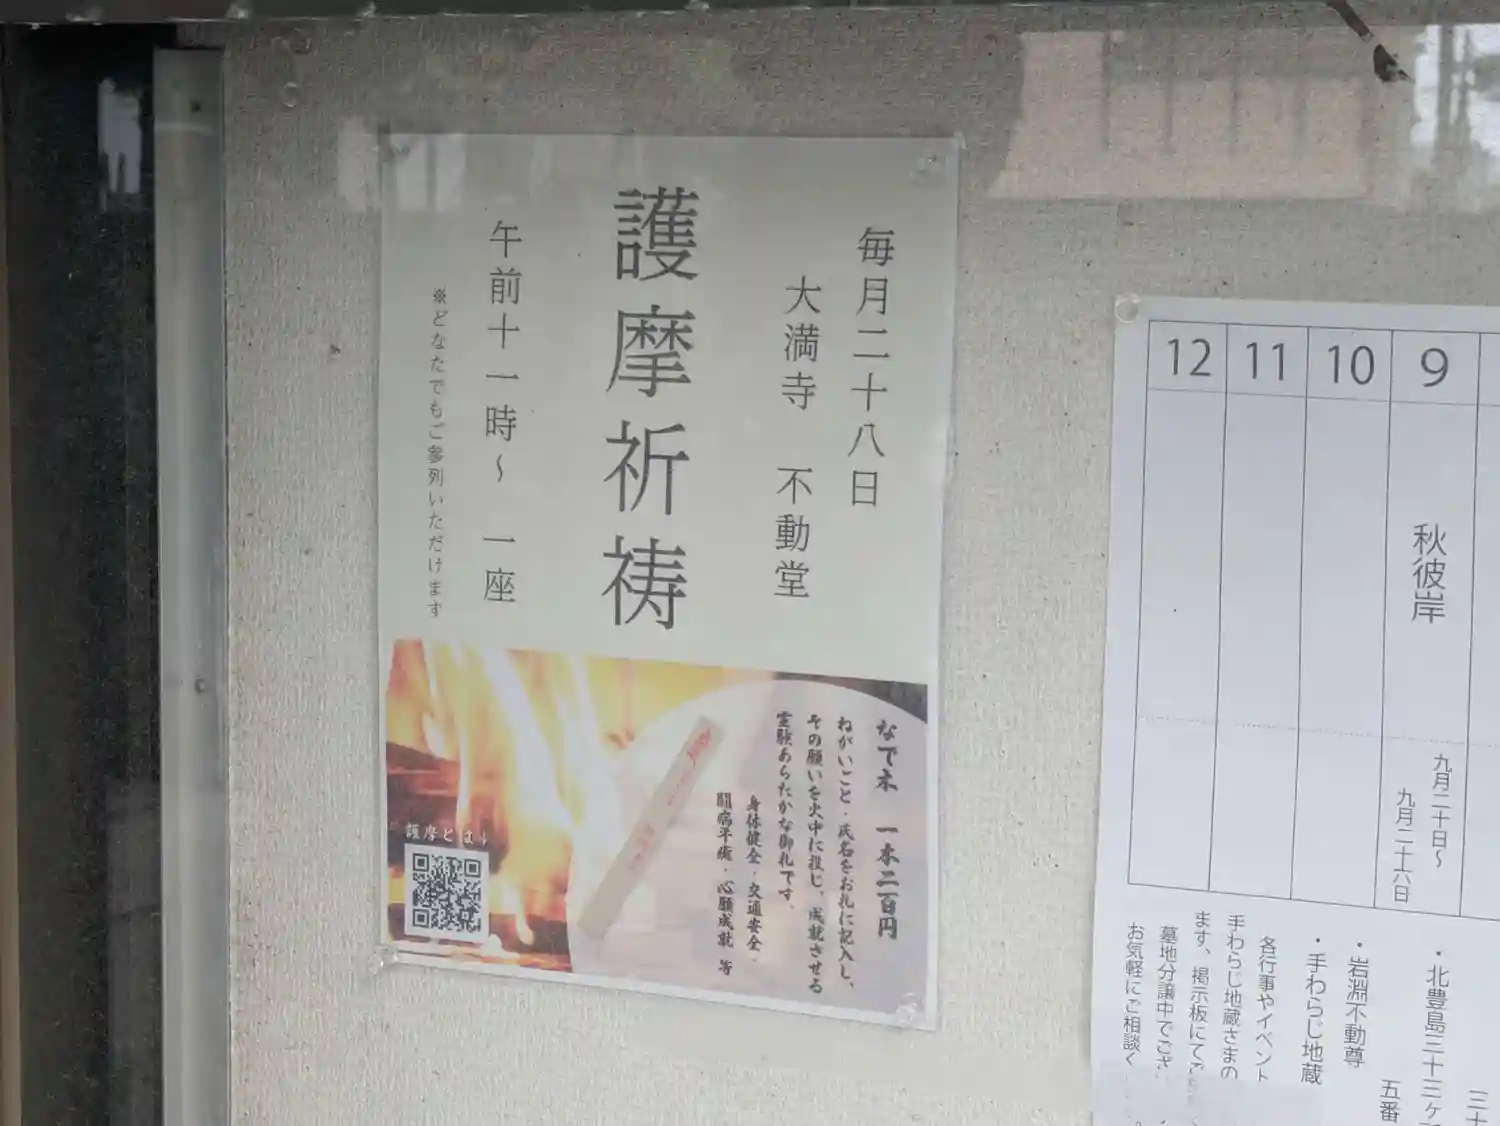 毎月二十八日
大満寺　不動堂
護摩祈祷
午前十一時～　一座
※どなたでもご参列いただけます
なで木　一本二百円
ねがいごと・氏名をお札に記入し、
その願いを火中に投じ、成就させる
霊験あらたかな御札です。
身体健全・交通安全・
闘病平癒・心願成就　等
護摩とは↓
9
10
11
12
秋彼岸
九月二十日～
九月二十六日
三十
・北豊島三十三ヶ
五番
・岩淵不動尊
・手わらじ地蔵
各行事やイベント
手わらじ地蔵さまの
ます、掲示板にてご
墓地分譲中でござ
お気軽にご相談く